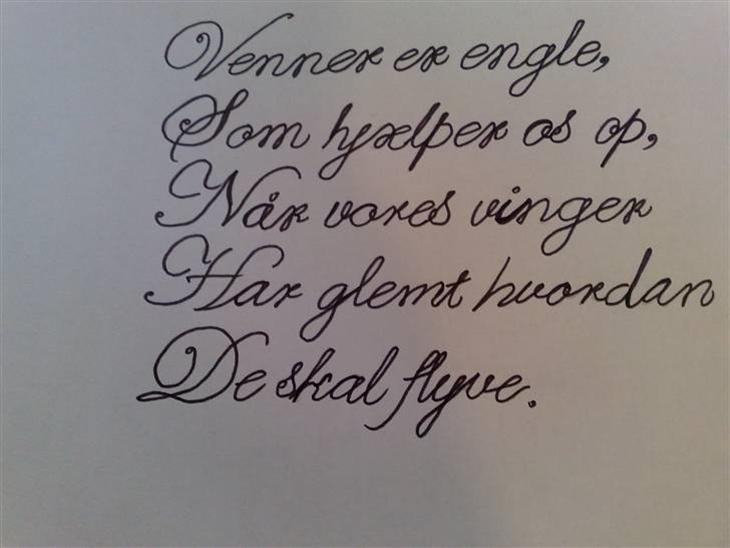 Venner er engle,
Som hjælper os op,
Når vores vinger
Har glemt hvordan
De skal flyve.